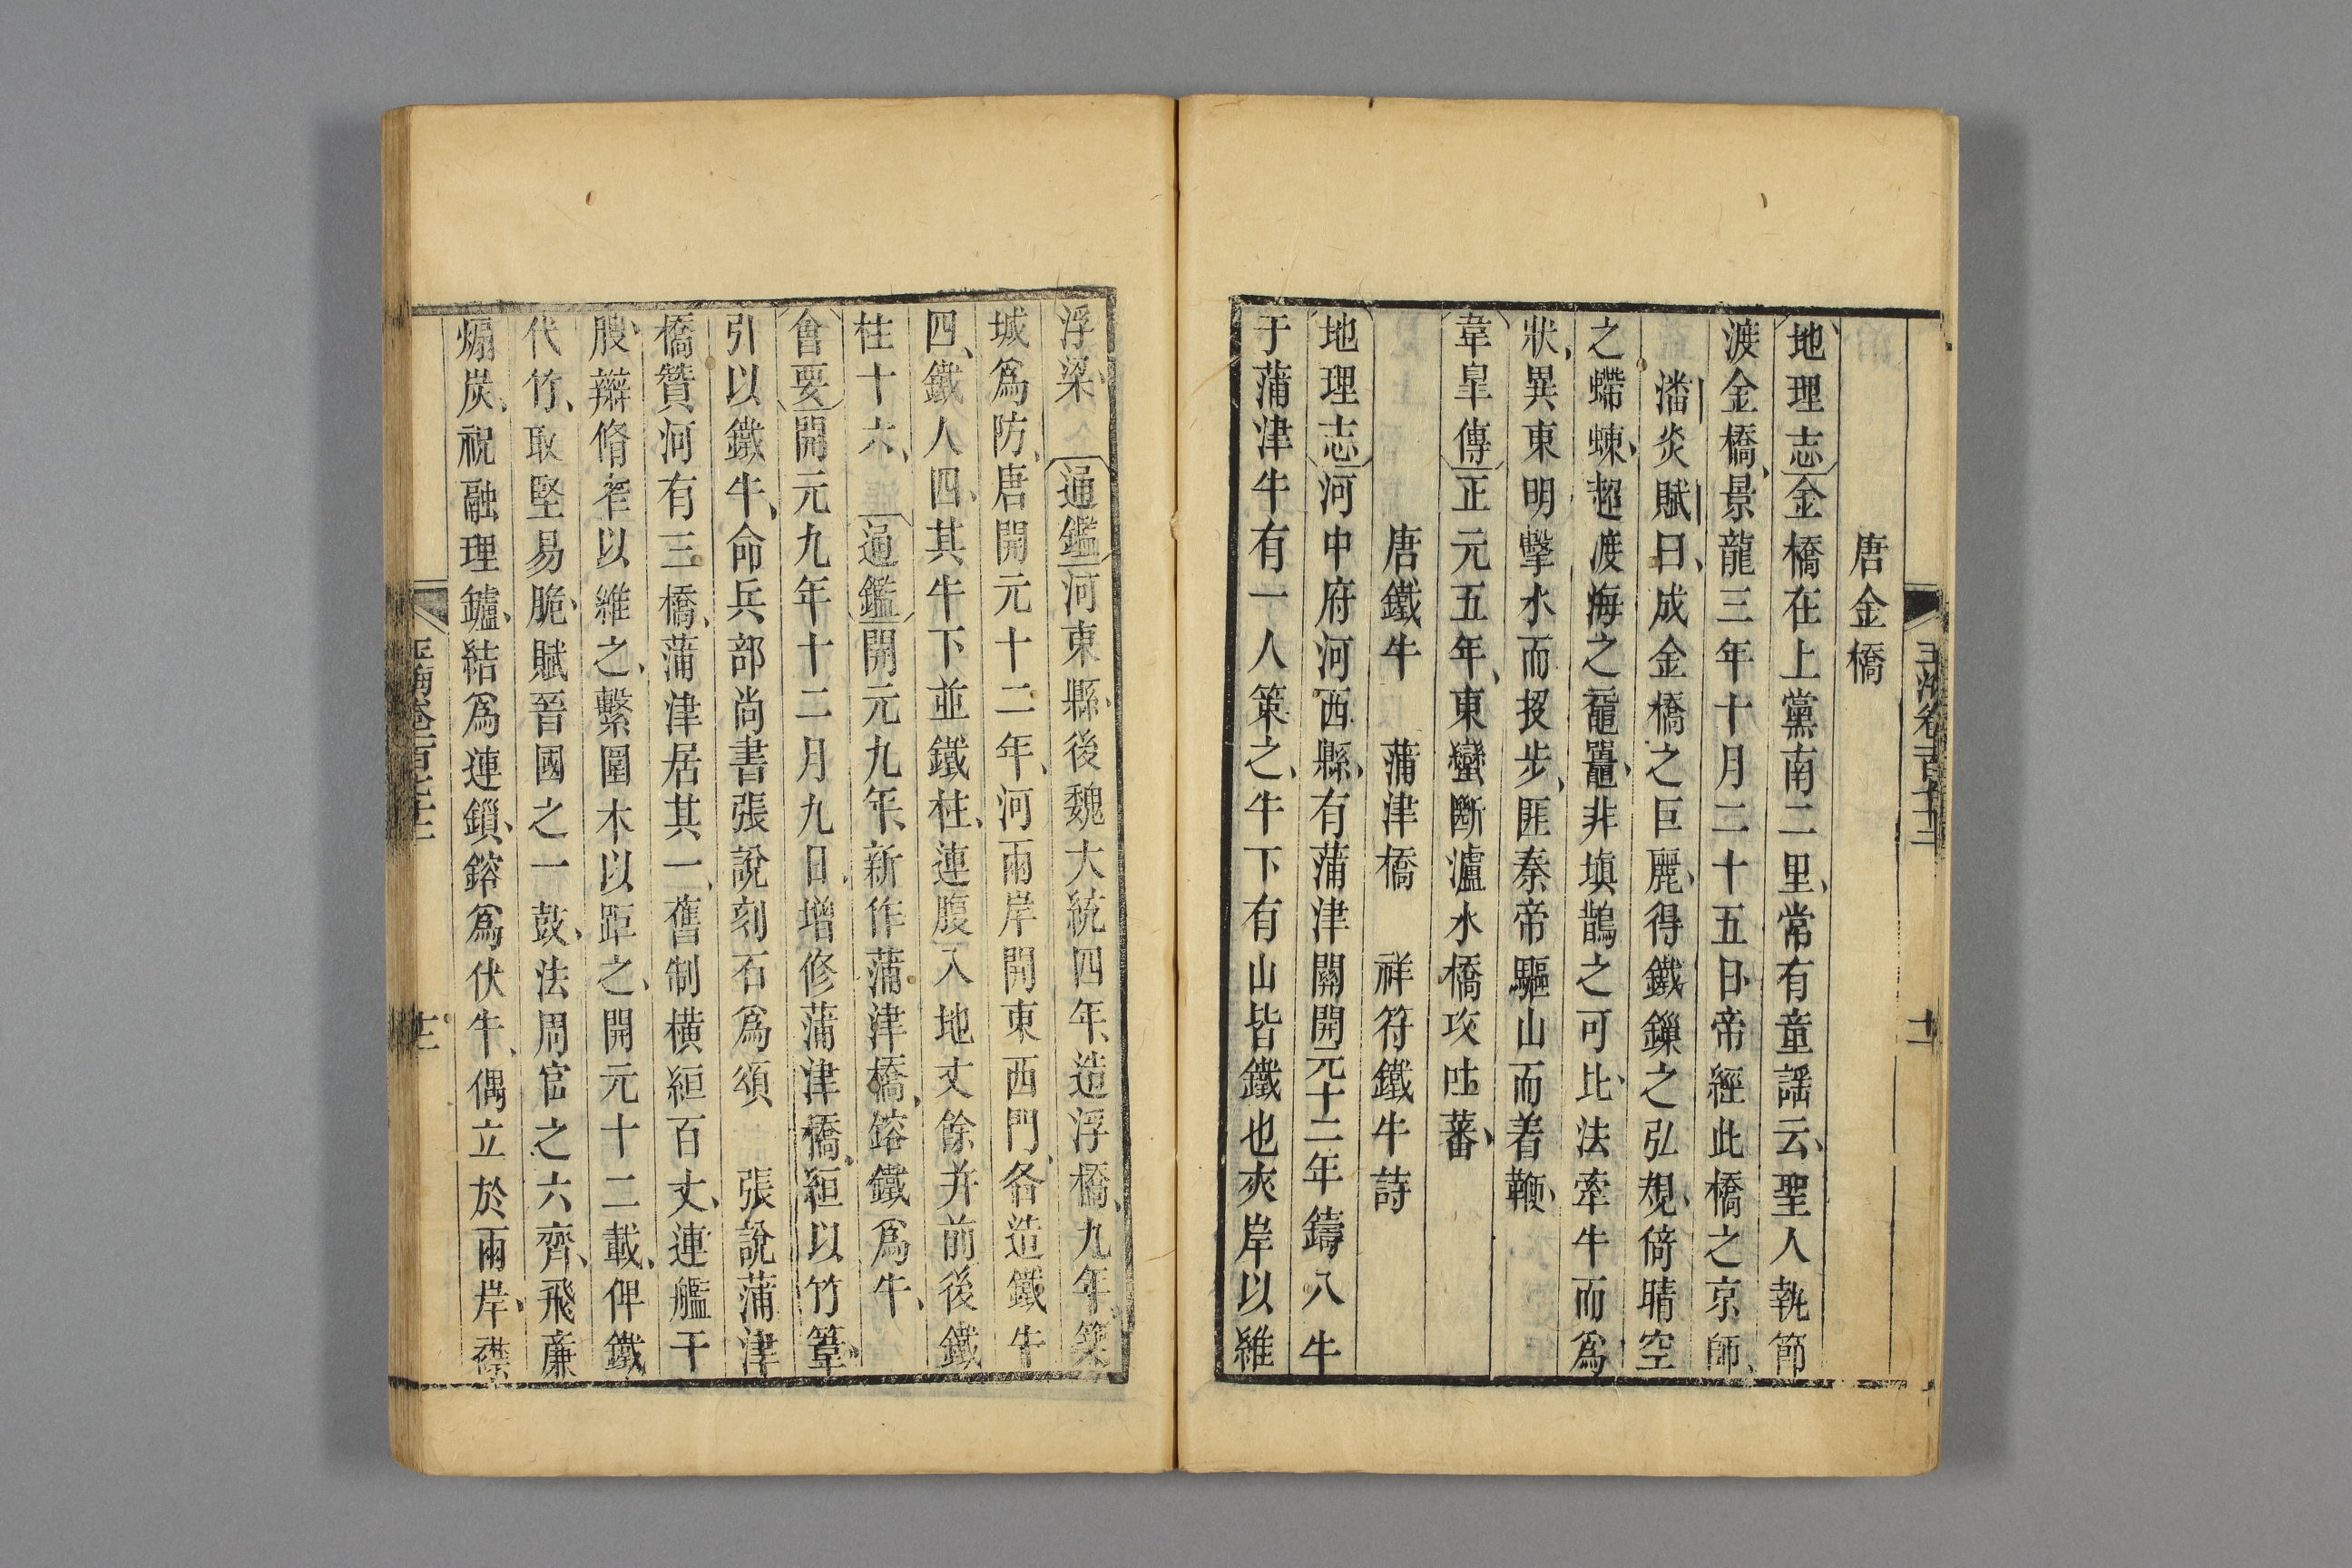 唐金橋
地理志金橋在上黨南二里常有童謡云聖人執節
渡金橋景龍三年十月二十五日帝經此橋之京師
潘炎賦曰成金橋之巨麗得鐵鏁之弘規倚晴空
之螮蝀超渡海之黿鼉非塡鵲之可比法牽牛而爲
狀異東明擊水而投步匪秦帝驅山而着鞭
韋皐傳正元五年東蠻斷瀘水橋攻吐蕃
唐鐵牛 蒲津橋 祥符鐵牛詩
地理志河中府河西縣有蒲津關開元十二年鑄八牛
于蒲津牛有一人策之牛下有山皆鐵也夾岸以維
浮梁 通鑑河東縣後魏大統四年造浮橋九年築
城爲防唐開元十二年河兩岸開東西門各造鐵牛
四鐵人四其牛下並鐵柱連腹入地丈餘并前後鐵
柱十六 通鑑開元九年新作蒲津橋鎔鐵爲牛
會要開元九年十二月九日增修蒲津橋絙以竹䈝
引以鐵牛命兵部尚書張說刻石爲頌 張說蒲津
橋贊河有三橋蒲津居其一舊制橫絙百丈連艦千
艘辮脩笮以維之繫圍木以距之開元十二載俾鐵
代竹取堅易脆賦晉國之一鼓法周官之六齊飛廉
煽炭祝融理鑪結爲連鎖鎔爲伏牛偶立於兩岸襟